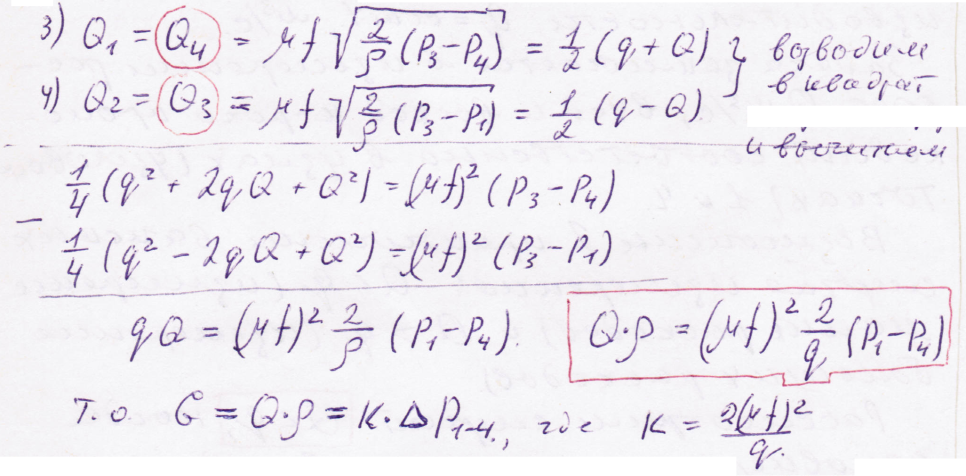 3) Q₁ = Q₄ = μf √(2/ρ (P₃ – P₄)) = 1/2 (q + Q) } возводим
4) Q₂ = Q₃ = μf √(2/ρ (P₃ – P₁)) = 1/2 (q – Q) в квадрат
и вычитаем
1/4 (q² + 2qQ + Q²) = (μf)² (P₃ – P₄)
–
1/4 (q² – 2qQ + Q²) = (μf)² (P₃ – P₁)
qQ = (μf)² 2/ρ (P₁ – P₄).
Q·ρ = (μf)² 2/q (P₁ – P₄)
т.о. G = Q·ρ = K·ΔP₁₋₄., где K = 2(μf)²/q.